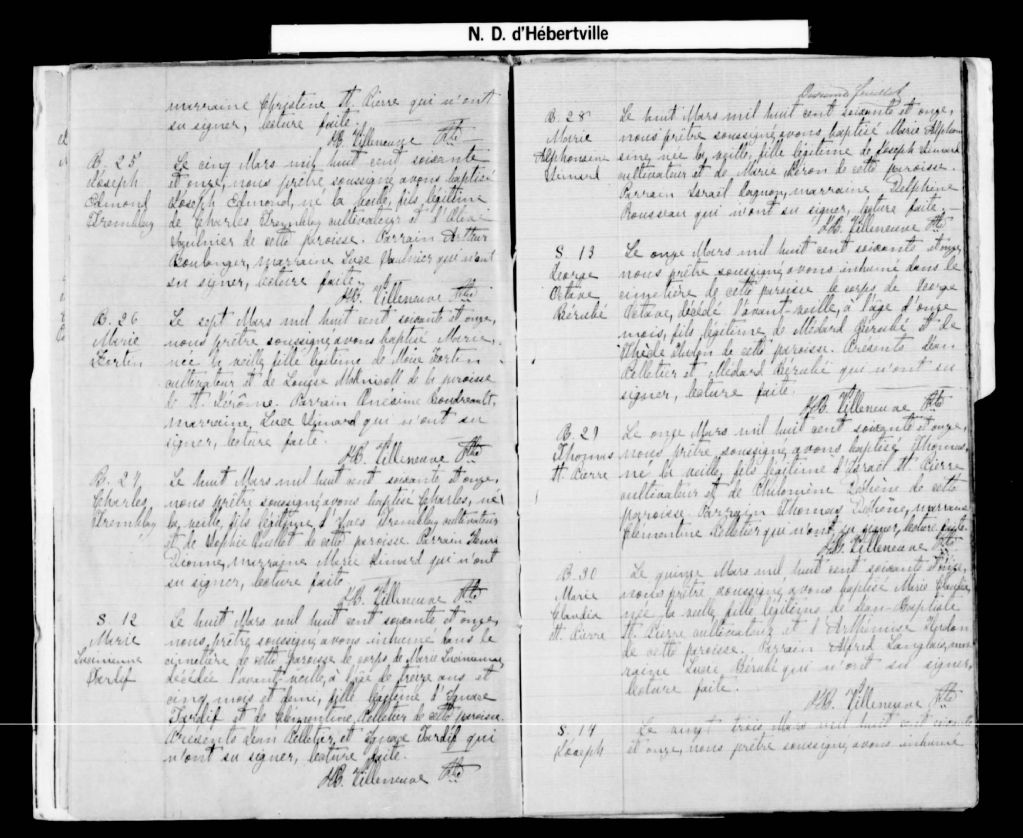 N. D. d'Hébertville
marraine Christine St. Pierre qui n'ont
su signer, lecture faite.
HB. Villeneuve Ptre
B. 25
Joseph
Edmond
Tremblay
Le cinq Mars mil huit cent soixante
et onze, nous prêtre soussigné avons baptisé
Joseph Edmond, né la veille, fils légitime
de Charles Tremblay cultivateur et d'
Saulnier de cette paroisse. Parrain Arthur
Boulanger, marraine Luce Saulnier qui n'ont
su signer, lecture faite.
HB. Villeneuve Ptre
B. 26
Marie
Fortin
Le sept Mars mil huit cent soixante et onze,
nous prêtre soussigné avons baptisé Marie,
née la veille, fille légitime de Moïse Fortin
cultivateur et de Louise de la paroisse
de St. Jérôme. Parrain Onésime Boudreault,
marraine, Luce Simard qui n'ont su
signer, lecture faite.
HB. Villeneuve Ptre
B. 27
Charles
Tremblay
Le huit Mars mil huit cent soixante et onze,
nous prêtre soussigné avons baptisé Charles, né
la veille, fils légitime d' Tremblay cultivateur
et de Sophie Ouellet de cette paroisse. Parrain Henri
Dionne, marraine Marie Simard qui n'ont
su signer, lecture faite.
HB. Villeneuve Ptre
S. 12
Marie
Tardif
Le huit Mars mil huit cent soixante et onze,
nous prêtre soussigné avons inhumé dans le
cimetière de cette paroisse le corps de Marie
décédée l'avant-veille, à l'âge de treize ans et
cinq mois et demi, fille légitime d'Ignace
Tardif et de Clémentine Pelletier de cette paroisse.
Présents Jean Pelletier et Ignace Tardif qui
n'ont su signer, lecture faite.
HB. Villeneuve Ptre
B. 28
Marie
Alphonsine
Simard
Le huit Mars mil huit cent soixante et onze,
nous prêtre soussigné avons baptisé Marie Alphon
sine, née la veille, fille légitime de Joseph Simard
cultivateur et de Marie de cette paroisse.
Parrain Israël Gagnon, marraine Delphine
Rousseau qui n'ont su signer, lecture faite.
HB. Villeneuve Ptre
S. 13
George
Octave
Bérubé
Le onze Mars mil huit cent soixante et onze,
nous prêtre soussigné avons inhumé dans le
cimetière de cette paroisse le corps de George
Octave, décédé l'avant-veille, à l'âge d'onze
mois, fils légitime de Médard Bérubé et de
Hudon de cette paroisse. Présents Jean
Pelletier et Médard Bérubé qui n'ont su
signer, lecture faite.
HB. Villeneuve Ptre
B. 29
Thomas
St. Pierre
Le onze Mars mil huit cent soixante et onze,
nous prêtre soussigné avons baptisé Thomas,
né la veille, fils légitime d'Israël St. Pierre
cultivateur et de Philomène de cette
paroisse. Parrain Thomas marraine
Clémentine Pelletier qui n'ont su signer, lecture faite.
HB. Villeneuve Ptre
B. 30
Marie
Claudia
St. Pierre
Le quinze Mars mil huit cent soixante et onze,
nous prêtre soussigné avons baptisé Marie Claudia,
née la veille, fille légitime de Jean-Baptiste
St. Pierre cultivateur et d'Arthémise Hudon
de cette paroisse. Parrain Alfred Langlais, mar
raine Luce Bérubé qui n'ont su signer,
lecture faite.
HB. Villeneuve Ptre
S. 14
Joseph
Le vingt trois Mars mil huit cent soixante
et onze, nous prêtre soussigné avons inhumé